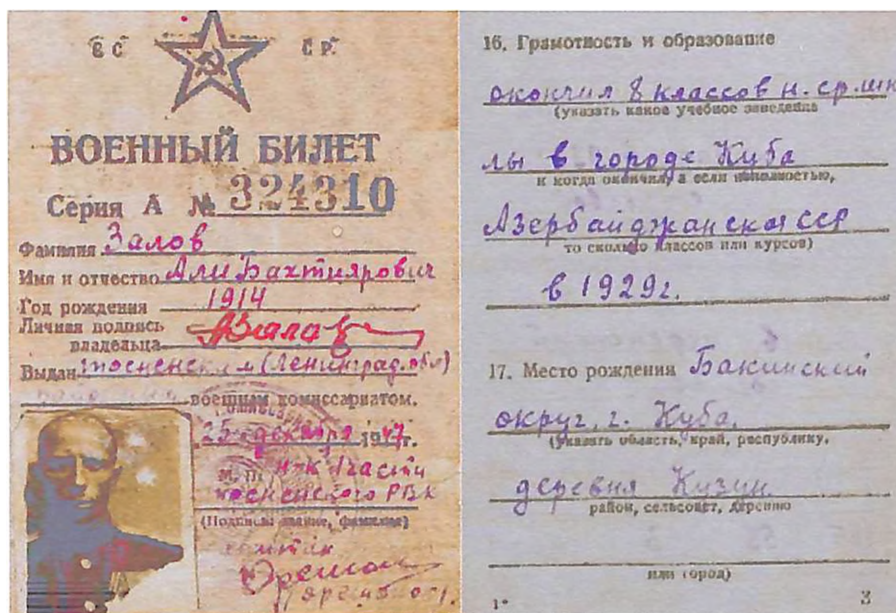 ВС СР
ВОЕННЫЙ БИЛЕТ
Серия А № 324310
Фамилия Залов
Имя и отчество Али Бахтиярович
Год рождения 1914
Личная подпись
владельца
Выдан Тосненским (Ленинград. обл)
военным комиссариатом.
25 декабря 1947 г.
н-к 1 части
Тосненского РВК
(Подпись, звание, фамилия)
16. Грамотность и образование
окончил 8 классов н. ср. шк
(указать какое учебное заведение
лы в городе Куба
и когда окончил, а если неполностью,
Азербайджанской ССР
то сколько классов или курсов)
в 1929 г.
17. Место рождения Бакинский
округ, г. Куба,
(указать область, край, республику,
деревня Кузун
район, сельсовет, деревню
или город)
1*
3